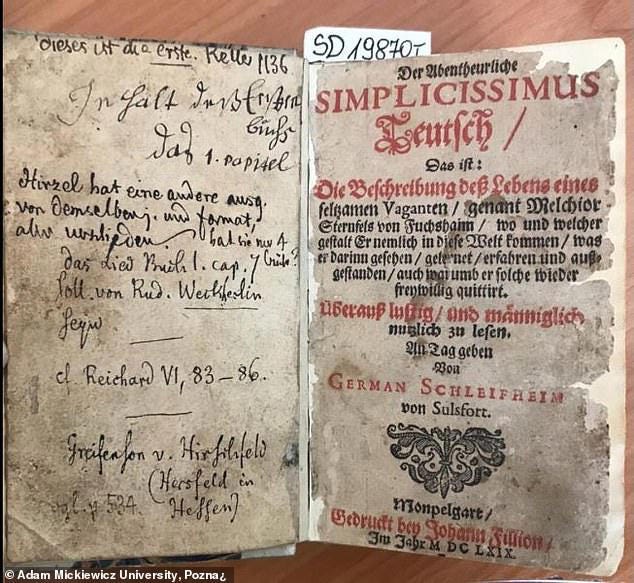 Dieses ist die erste.
1136
Inhalt deß Ersten
buchs
das 1. Capitel
Hirzel hat eine andere ausg.
von demselben j. und format,
hat sie nur 4
das Lied Buch 1. cap. 7
soll von Rud. Weckherlin
seyn
cf. Reichard VI, 83–86.
Greifenson v. Hirschfeld
(Hersfeld in
Hessen)
vgl. p. 534.
SD 19870 I
Der Abentheurliche
SIMPLICISSIMUS
Teutsch /
Das ist:
Die Beschreibung deß Lebens eines
seltzamen Vaganten / genant Melchior
Sternfels von Fuchshaim / wo und welcher
gestalt Er nemlich in diese Welt kommen / was
er darinn gesehen / gelernet / erfahren und auß-
gestanden / auch warumb er solche wieder
freywillig quittirt.
Überauß lustig / und männiglich
nutzlich zu lesen.
An Tag geben
Von
GERMAN SCHLEIFHEIM
von Sulsfort.
Monpelgart /
Gedruckt bey Johann Fillion /
Im Jahr M DC LXIX.
© Adam Mickiewicz University, Pozna¿